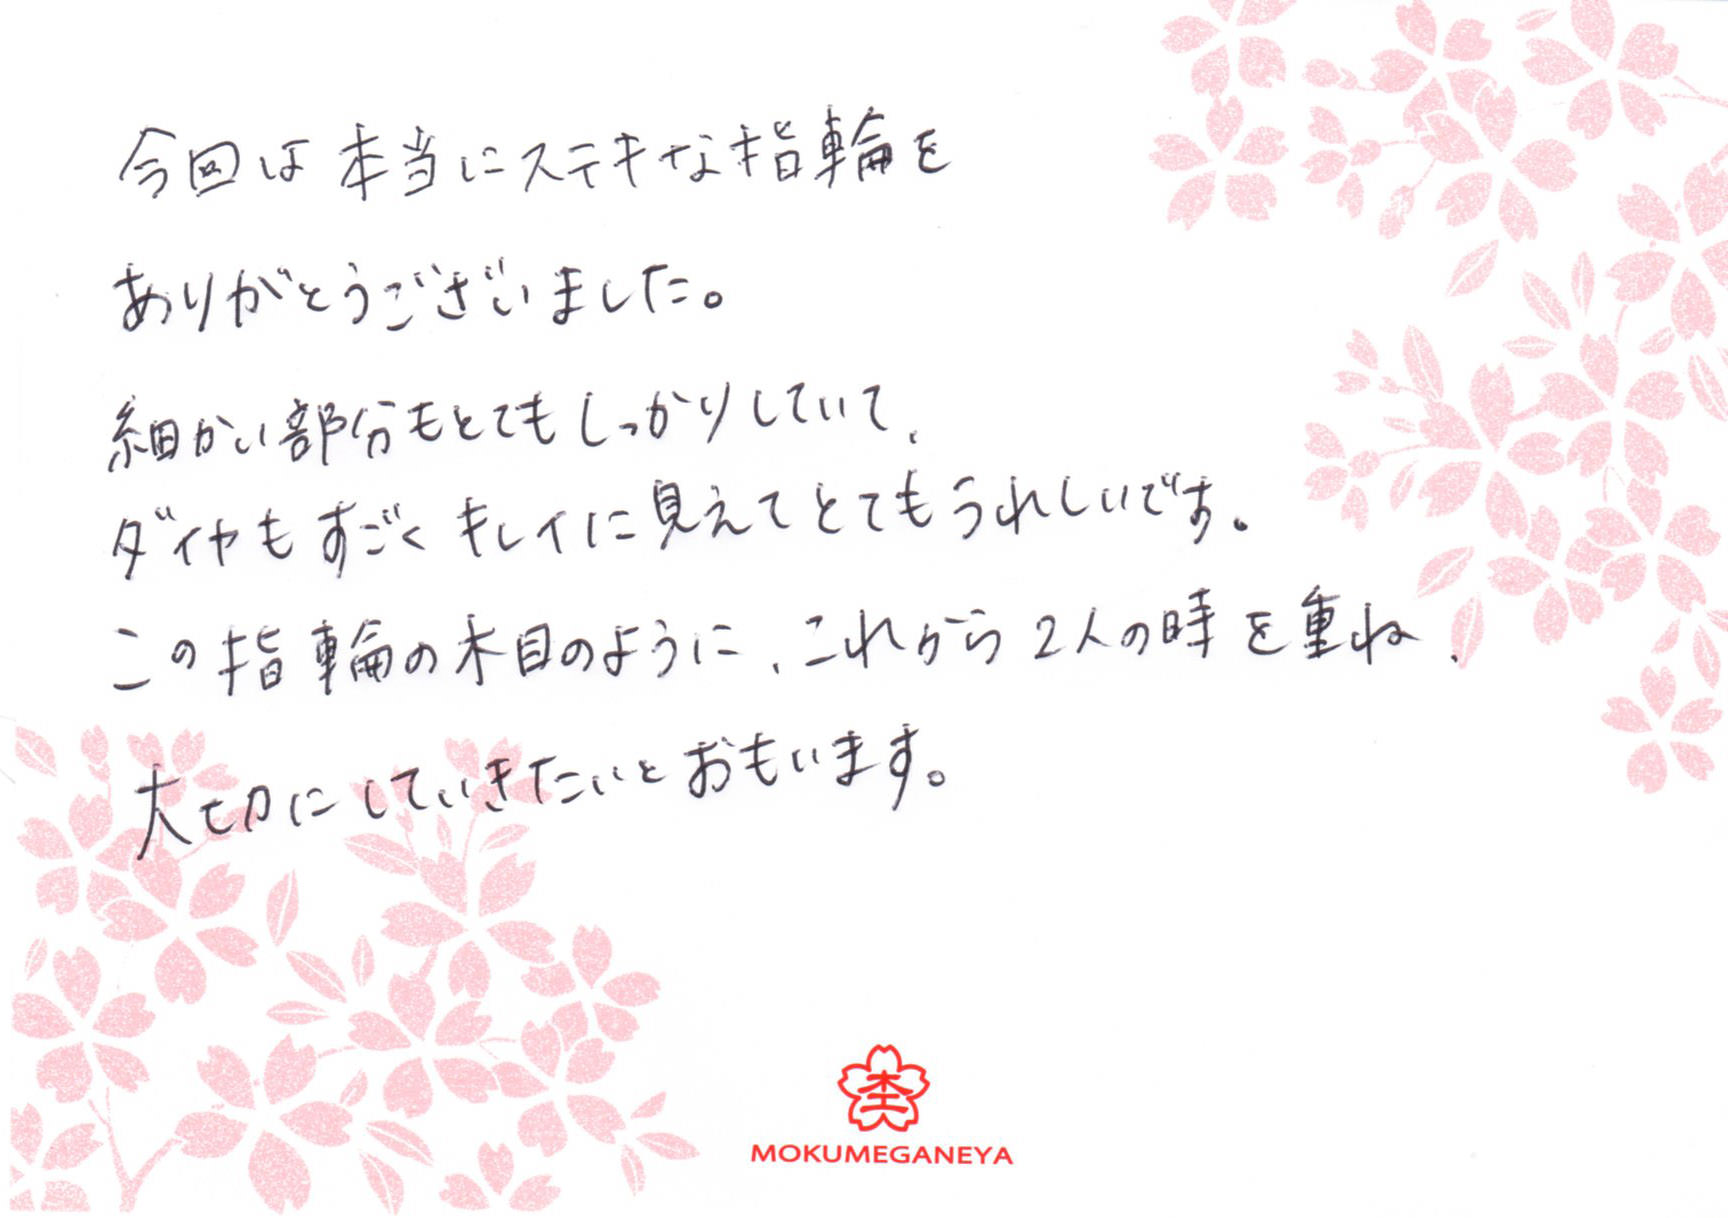 今回は本当にステキな指輪を
ありがとうございました。
細かい部分もとてもしっかりしていて、
ダイヤもすごくキレイに見えてとてもうれしいです。
この指輪の木目のように、これから2人の時を重ね、
大切にしていきたいとおもいます。
MOKUMEGANEYA